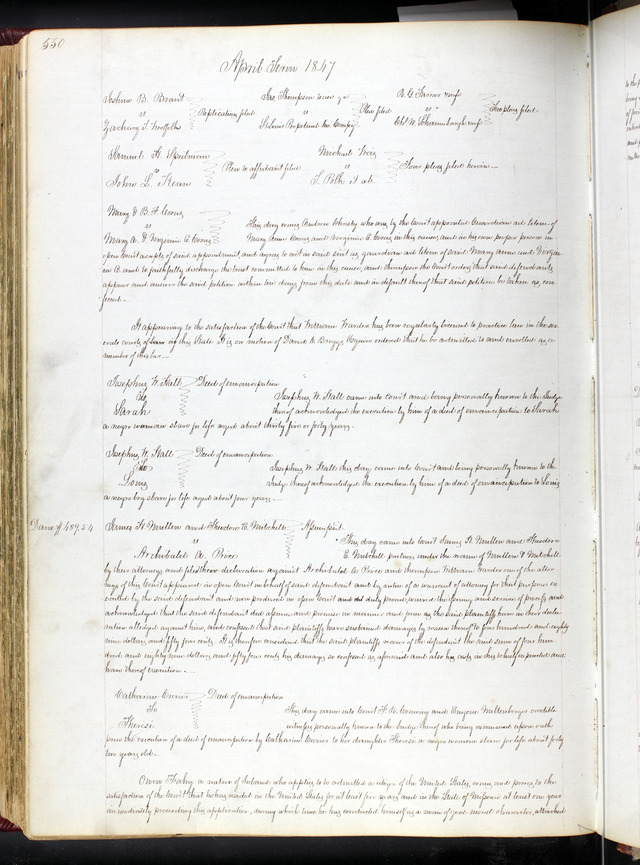 550
April Term 1847
Joshua B. Brant
vs
Replication filed
Jas Thompson
vs
Plea filed
St Louis Perpetual Ins Compy
vs
Two pleas filed
Chs W.
Samuel H.
vs
Plea to affidavit filed
John L.
Michael
vs
Four pleas filed herein
T. Polk et al.
Mary & B. F.
vs
Mary A. & Virginia C.
This day comes Andrew Christy who was by the Court appointed Guardian ad litem of
Mary Ann and Virginia C. in this cause, and in his own proper person in
open Court accepts of said appointment, and agrees to act in said suit as guardian ad litem of said Mary Ann and Virgin-
ia C. and to faithfully discharge the trust committed to him in this cause, and thereupon the Court orders that said defendants
appear and answer the said petition within ten days from this date and in default thereof that said petition be taken as con-
fessed.
It appearing to the satisfaction of the Court that William has been regularly licensed to practice law in the sev-
eral courts of law in this State It is on motion of David Esquire ordered that he be admitted to and enrolled as a
member of this bar.
Josephus W. Hall
Deed of emancipation
To
Sarah
Josephus W. Hall came into court and being personally known to the Judge
thereof acknowledged the execution by him of a deed of emancipation to Sarah
a negro woman slave for life aged about thirty five or forty years.
Josephus W. Hall
Deed of emancipation
To
Josephus W. Hall this day came into Court and being personally known to the
Judge thereof acknowledged the execution by him of a deed of emancipation to
a negro boy slave for life aged about four years.
Dams $489,54
James H. Mullen and Theodore E. Mitchell
Assumpsit
vs
Archibald A.
This day came into Court James H. Mullen and Theodore
E. Mitchell partners under the name of Mullen & Mitchell
by their attorney and files their declaration against Archibald A. and thereupon William an attor-
ney of this Court appeared in open Court in behalf of said defendant and by virtue of a warrant of attorney for that purpose ex-
ecuted by the said defendant and now produced in open Court and duly proved, waived the issuing and service of process and
acknowledged that the said defendant did assume and promise in manner and form as the said plaintiffs have in their decla-
ration alleged against him, and confessed that said plaintiffs have sustained damages by reason thereof to four hundred and eighty
nine dollars and fifty four cents. It is therefore considered that the said plaintiffs recover of the defendant the said sum of four hun-
dred and eighty nine dollars and fifty four cents his damages so confessed as aforesaid and also his costs in this behalf expended and
have thereof execution.
Catharine
Deed of emancipation
To
Therese
This day came into Court F. R. Conway and Eugene Miltenberger credible
witnesses personally known to the Judge thereof who being examined upon oath
prove the execution of a deed of emancipation by Catharine to her daughter Therese a negro woman slave for life aged about forty
two years old.
Owen a native of Ireland who applies to be admitted a citizen of the United States, comes and proves to the
satisfaction of the Court that he has resided in the United States for at least five years and in the State of Missouri at least one year
immediately preceding this application, during which time he has conducted himself as a man of good moral character, attached